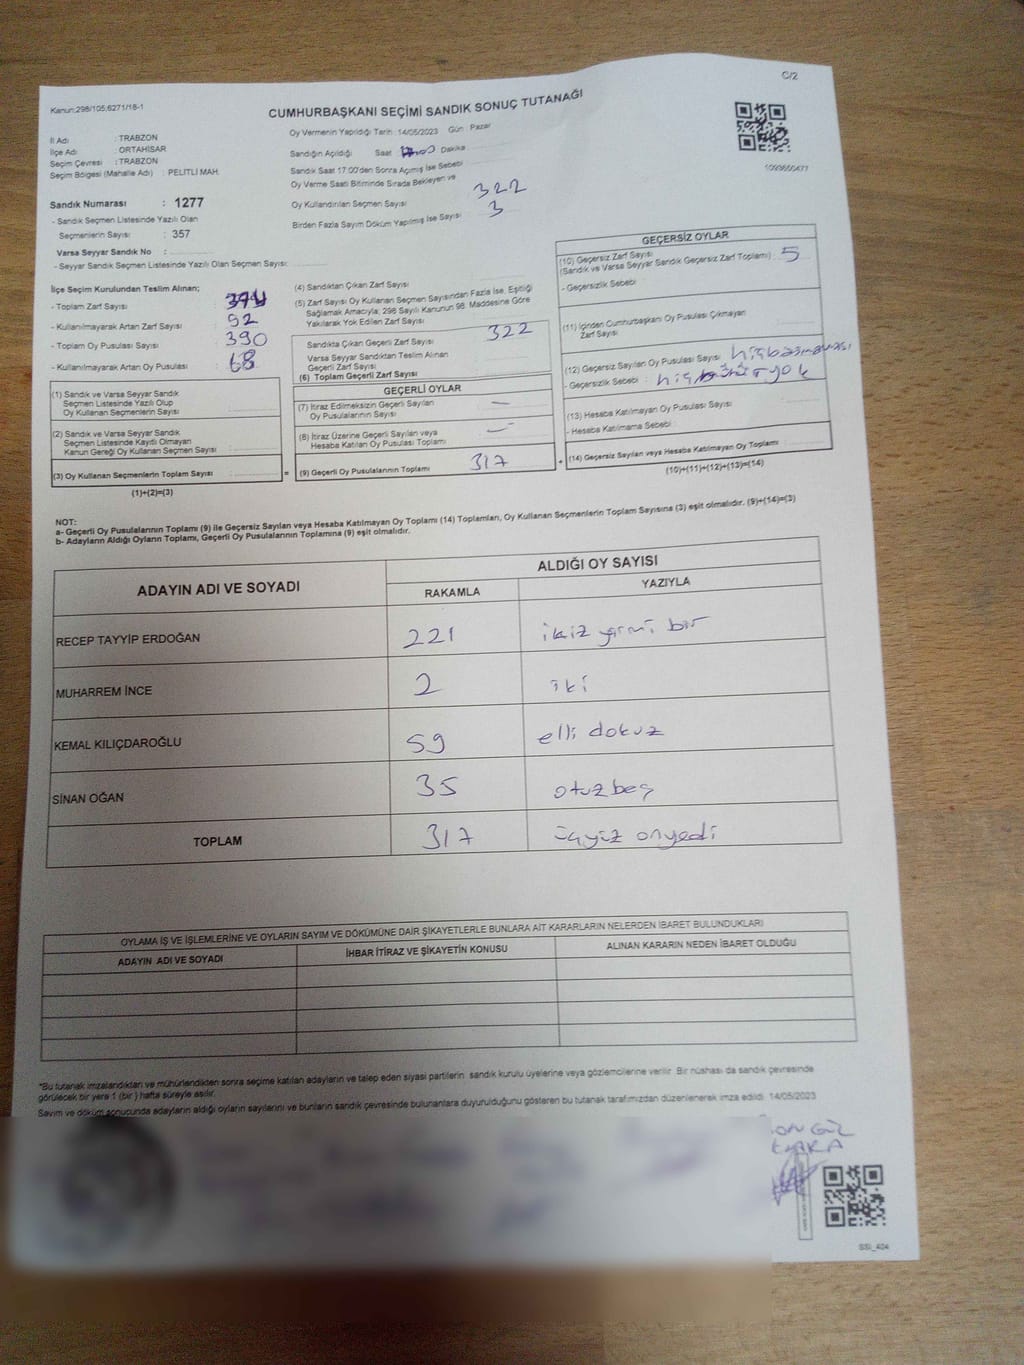 C/2
Kanun:298/105,6271/18-1
CUMHURBAŞKANI SEÇİMİ SANDIK SONUÇ TUTANAĞI
İl Adı : TRABZON
İlçe Adı : ORTAHİSAR
Seçim Çevresi : TRABZON
Seçim Bölgesi (Mahalle Adı) : PELİTLİ MAH.
Oy Vermenin Yapıldığı Tarih : 14/05/2023 Gün : Pazar
Sandığın Açıldığı Saat Dakika
Sandık Saat 17:00'den Sonra Açımış İse Sebebi
Oy Verme Saati Bitiminde Sırada Bekleyen ve
Oy Kullandırılan Seçmen Sayısı 322
Birden Fazla Sayım Döküm Yapılmış İse Sayısı 3
1093650477
Sandık Numarası : 1277
- Sandık Seçmen Listesinde Yazılı Olan
Seçmenlerin Sayısı : 357
Varsa Seyyar Sandık No :
- Seyyar Sandık Seçmen Listesinde Yazılı Olan Seçmen Sayısı:
İlçe Seçim Kurulundan Teslim Alınan;
- Toplam Zarf Sayısı
- Kullanılmayarak Artan Zarf Sayısı : 92
- Toplam Oy Pusulası Sayısı : 390
- Kullanılmayarak Artan Oy Pusulası : 68
(1) Sandık ve Varsa Seyyar Sandık
Seçmen Listesinde Yazılı Olup
Oy Kullanan Seçmenlerin Sayısı :
(2) Sandık ve Varsa Seyyar Sandık
Seçmen Listesinde Kayıtlı Olmayan
Kanun Gereği Oy Kullanan Seçmen Sayısı :
(3) Oy Kullanan Seçmenlerin Toplam Sayısı : =
(1)+(2)=(3)
(4) Sandıktan Çıkan Zarf Sayısı
(5) Zarf Sayısı Oy Kullanan Seçmen Sayısından Fazla İse, Eşitliği
Sağlamak Amacıyla; 298 Sayılı Kanunun 98. Maddesine Göre
Yakılarak Yok Edilen Zarf Sayısı
Sandıkta Çıkan Geçerli Zarf Sayısı 322
Varsa Seyyar Sandıktan Teslim Alınan
Geçerli Zarf Sayısı
(6) Toplam Geçerli Zarf Sayısı
GEÇERLİ OYLAR
(7) İtiraz Edilmeksizin Geçerli Sayılan
Oy Pusulalarının Sayısı —
(8) İtiraz Üzerine Geçerli Sayılan veya
Hesaba Katılan Oy Pusulası Toplamı —
(9) Geçerli Oy Pusulalarının Toplamı 317 +
GEÇERSİZ OYLAR
(10) Geçersiz Zarf Sayısı
(Sandık ve Varsa Seyyar Sandık Geçersiz Zarf Toplamı) : 5
- Geçersizlik Sebebi
(11) İçinden Cumhurbaşkanı Oy Pusulası Çıkmayan
Zarf Sayısı
(12) Geçersiz Sayılan Oy Pusulası Sayısı
- Geçersizlik Sebebi :
(13) Hesaba Katılmayan Oy Pusulası Sayısı
- Hesaba Katılmama Sebebi :
(14) Geçersiz Sayılan veya Hesaba Katılmayan Oy Toplamı
(10)+(11)+(12)+(13)=(14)
NOT:
a- Geçerli Oy Pusulalarının Toplamı (9) ile Geçersiz Sayılan veya Hesaba Katılmayan Oy Toplamı (14) Toplamları, Oy Kullanan Seçmenlerin Toplam Sayısına (3) eşit olmalıdır. (9)+(14)=(3)
b- Adayların Aldığı Oyların Toplamı, Geçerli Oy Pusulalarının Toplamına (9) eşit olmalıdır.
ADAYIN ADI VE SOYADI
ALDIĞI OY SAYISI
RAKAMLA YAZIYLA
RECEP TAYYİP ERDOĞAN 221 yirmi bir
MUHARREM İNCE 2 iki
KEMAL KILIÇDAROĞLU 59 elli dokuz
SİNAN OĞAN 35 otuzbeş
TOPLAM 317 üçyüz onyedi
OYLAMA İŞ VE İŞLEMLERİNE VE OYLARIN SAYIM VE DÖKÜMÜNE DAİR ŞİKAYETLERLE BUNLARA AİT KARARLARIN NELERDEN İBARET BULUNDUKLARI
ADAYIN ADI VE SOYADI İHBAR İTİRAZ VE ŞİKAYETİN KONUSU ALINAN KARARIN NEDEN İBARET OLDUĞU
*Bu tutanak imzalandıktan ve mühürlendikten sonra seçime katılan adayların ve talep eden siyasi partilerin sandık kurulu üyelerine veya gözlemcilerine verilir. Bir nüshası da sandık çevresinde
görülecek bir yere 1 (bir ) hafta süreyle asılır.
Sayım ve döküm sonucunda adayların aldığı oyların sayılarını ve bunların sandık çevresinde bulunanlara duyurulduğunu gösteren bu tutanak tarafımızdan düzenlenerek imza edildi. 14/05/2023
KARA
SSI_404